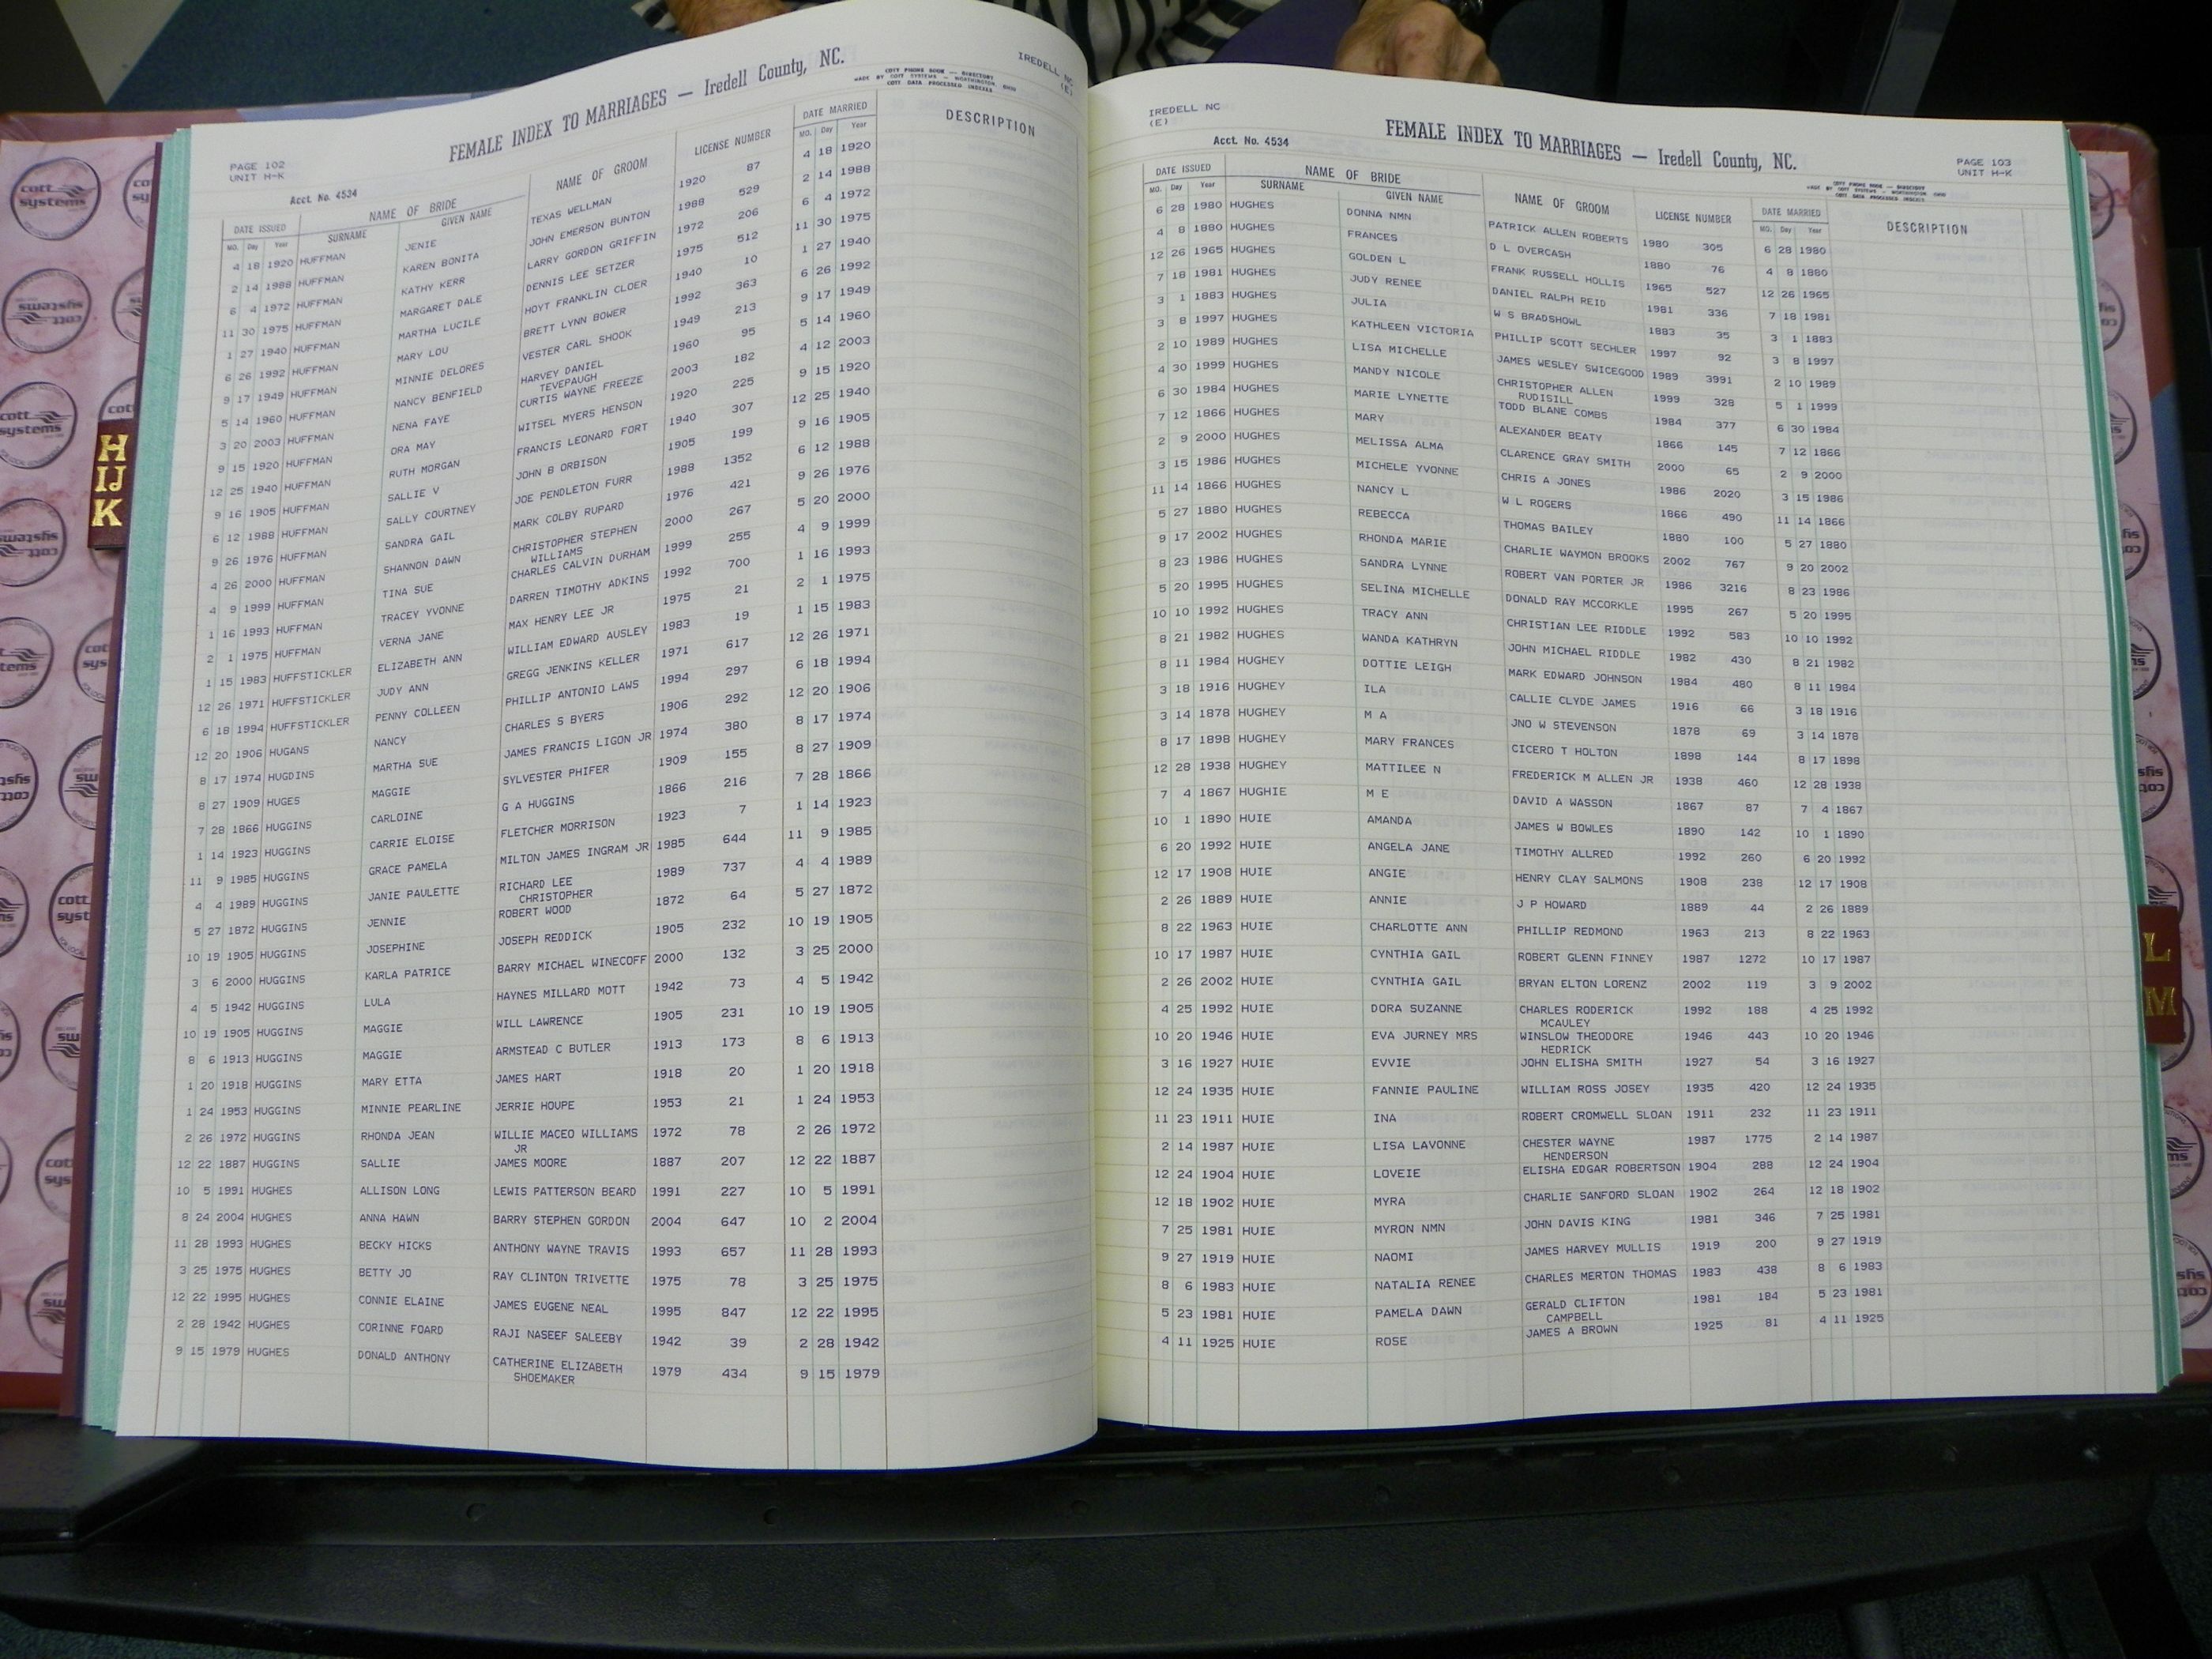 FEMALE INDEX TO MARRIAGES — Iredell County, NC.
IREDELL NC
(E)
COTT PHONE BOOK — DIRECTORY
MADE BY COTT SYSTEMS — WORTHINGTON, OHIO
COTT DATA PROCESSED INDEXES
PAGE 102
UNIT H-K
Acct. No. 4534
DATE ISSUED NAME OF BRIDE NAME OF GROOM LICENSE NUMBER DATE MARRIED DESCRIPTION
MO. Day Year SURNAME GIVEN NAME MO. Day Year
4 18 1920 HUFFMAN JENIE TEXAS WELLMAN 1920 87 4 18 1920
2 14 1988 HUFFMAN KAREN BONITA JOHN EMERSON BUNTON 1988 529 2 14 1988
6 4 1972 HUFFMAN KATHY KERR LARRY GORDON GRIFFIN 1972 206 6 4 1972
11 30 1975 HUFFMAN MARGARET DALE DENNIS LEE SETZER 1975 512 11 30 1975
1 27 1940 HUFFMAN MARTHA LUCILE HOYT FRANKLIN CLOER 1940 10 1 27 1940
6 26 1992 HUFFMAN MARY LOU BRETT LYNN BOWER 1992 363 6 26 1992
9 17 1949 HUFFMAN MINNIE DELORES VESTER CARL SHOOK 1949 213 9 17 1949
5 14 1960 HUFFMAN NANCY BENFIELD HARVEY DANIEL 1960 95 5 14 1960
TEVEPAUGH
3 20 2003 HUFFMAN NENA FAYE CURTIS WAYNE FREEZE 2003 182 4 12 2003
9 15 1920 HUFFMAN ORA MAY WITSEL MYERS HENSON 1920 225 9 15 1920
12 25 1940 HUFFMAN RUTH MORGAN FRANCIS LEONARD FORT 1940 307 12 25 1940
9 16 1905 HUFFMAN SALLIE V JOHN B ORBISON 1905 199 9 16 1905
6 12 1988 HUFFMAN SALLY COURTNEY JOE PENDLETON FURR 1988 1352 6 12 1988
9 26 1976 HUFFMAN SANDRA GAIL MARK COLBY RUPARD 1976 421 9 26 1976
4 26 2000 HUFFMAN SHANNON DAWN CHRISTOPHER STEPHEN 2000 267 5 20 2000
WILLIAMS
4 9 1999 HUFFMAN TINA SUE CHARLES CALVIN DURHAM 1999 255 4 9 1999
1 16 1993 HUFFMAN TRACEY YVONNE DARREN TIMOTHY ADKINS 1992 700 1 16 1993
2 1 1975 HUFFMAN VERNA JANE MAX HENRY LEE JR 1975 21 2 1 1975
1 15 1983 HUFFSTICKLER ELIZABETH ANN WILLIAM EDWARD AUSLEY 1983 19 1 15 1983
12 26 1971 HUFFSTICKLER JUDY ANN GREGG JENKINS KELLER 1971 617 12 26 1971
6 18 1994 HUFFSTICKLER PENNY COLLEEN PHILLIP ANTONIO LAWS 1994 297 6 18 1994
12 20 1906 HUGANS NANCY CHARLES S BYERS 1906 292 12 20 1906
8 17 1974 HUGDINS MARTHA SUE JAMES FRANCIS LIGON JR 1974 380 8 17 1974
8 27 1909 HUGES MAGGIE SYLVESTER PHIFER 1909 155 8 27 1909
7 28 1866 HUGGINS CARLOINE G A HUGGINS 1866 216 7 28 1866
1 14 1923 HUGGINS CARRIE ELOISE FLETCHER MORRISON 1923 7 1 14 1923
11 9 1985 HUGGINS GRACE PAMELA MILTON JAMES INGRAM JR 1985 644 11 9 1985
4 4 1989 HUGGINS JANIE PAULETTE RICHARD LEE 1989 737 4 4 1989
CHRISTOPHER
5 27 1872 HUGGINS JENNIE ROBERT WOOD 1872 64 5 27 1872
10 19 1905 HUGGINS JOSEPHINE JOSEPH REDDICK 1905 232 10 19 1905
3 6 2000 HUGGINS KARLA PATRICE BARRY MICHAEL WINECOFF 2000 132 3 25 2000
4 5 1942 HUGGINS LULA HAYNES MILLARD MOTT 1942 73 4 5 1942
10 19 1905 HUGGINS MAGGIE WILL LAWRENCE 1905 231 10 19 1905
8 6 1913 HUGGINS MAGGIE ARMSTEAD C BUTLER 1913 173 8 6 1913
1 20 1918 HUGGINS MARY ETTA JAMES HART 1918 20 1 20 1918
1 24 1953 HUGGINS MINNIE PEARLINE JERRIE HOUPE 1953 21 1 24 1953
2 26 1972 HUGGINS RHONDA JEAN WILLIE MACEO WILLIAMS 1972 78 2 26 1972
JR
12 22 1887 HUGGINS SALLIE JAMES MOORE 1887 207 12 22 1887
10 5 1991 HUGHES ALLISON LONG LEWIS PATTERSON BEARD 1991 227 10 5 1991
8 24 2004 HUGHES ANNA HAWN BARRY STEPHEN GORDON 2004 647 10 2 2004
11 28 1993 HUGHES BECKY HICKS ANTHONY WAYNE TRAVIS 1993 657 11 28 1993
3 25 1975 HUGHES BETTY JO RAY CLINTON TRIVETTE 1975 78 3 25 1975
12 22 1995 HUGHES CONNIE ELAINE JAMES EUGENE NEAL 1995 847 12 22 1995
2 28 1942 HUGHES CORINNE FOARD RAJI NASEEF SALEEBY 1942 39 2 28 1942
9 15 1979 HUGHES DONALD ANTHONY CATHERINE ELIZABETH 1979 434 9 15 1979
SHOEMAKER
IREDELL NC
(E)
Acct. No. 4534
FEMALE INDEX TO MARRIAGES — Iredell County, NC.
PAGE 103
UNIT H-K
COTT PHONE BOOK — DIRECTORY
MADE BY COTT SYSTEMS — WORTHINGTON, OHIO
COTT DATA PROCESSED INDEXES
DATE ISSUED NAME OF BRIDE NAME OF GROOM LICENSE NUMBER DATE MARRIED DESCRIPTION
MO. Day Year SURNAME GIVEN NAME MO. Day Year
6 28 1980 HUGHES DONNA NMN PATRICK ALLEN ROBERTS 1980 305 6 28 1980
4 8 1880 HUGHES FRANCES D L OVERCASH 1880 76 4 8 1880
12 26 1965 HUGHES GOLDEN L FRANK RUSSELL HOLLIS 1965 527 12 26 1965
7 18 1981 HUGHES JUDY RENEE DANIEL RALPH REID 1981 336 7 18 1981
3 1 1883 HUGHES JULIA W S BRADSHOWL 1883 35 3 1 1883
3 8 1997 HUGHES KATHLEEN VICTORIA PHILLIP SCOTT SECHLER 1997 92 3 8 1997
2 10 1989 HUGHES LISA MICHELLE JAMES WESLEY SWICEGOOD 1989 3991 2 10 1989
4 30 1999 HUGHES MANDY NICOLE CHRISTOPHER ALLEN 1999 328 5 1 1999
RUDISILL
6 30 1984 HUGHES MARIE LYNETTE TODD BLANE COMBS 1984 377 6 30 1984
7 12 1866 HUGHES MARY ALEXANDER BEATY 1866 145 7 12 1866
2 9 2000 HUGHES MELISSA ALMA CLARENCE GRAY SMITH 2000 65 2 9 2000
3 15 1986 HUGHES MICHELE YVONNE CHRIS A JONES 1986 2020 3 15 1986
11 14 1866 HUGHES NANCY L W L ROGERS 1866 490 11 14 1866
5 27 1880 HUGHES REBECCA THOMAS BAILEY 1880 100 5 27 1880
9 17 2002 HUGHES RHONDA MARIE CHARLIE WAYMON BROOKS 2002 767 9 20 2002
8 23 1986 HUGHES SANDRA LYNNE ROBERT VAN PORTER JR 1986 3216 8 23 1986
5 20 1995 HUGHES SELINA MICHELLE DONALD RAY MCCORKLE 1995 267 5 20 1995
10 10 1992 HUGHES TRACY ANN CHRISTIAN LEE RIDDLE 1992 583 10 10 1992
8 21 1982 HUGHES WANDA KATHRYN JOHN MICHAEL RIDDLE 1982 430 8 21 1982
8 11 1984 HUGHEY DOTTIE LEIGH MARK EDWARD JOHNSON 1984 480 8 11 1984
3 18 1916 HUGHEY ILA CALLIE CLYDE JAMES 1916 66 3 18 1916
3 14 1878 HUGHEY M A JNO W STEVENSON 1878 69 3 14 1878
8 17 1898 HUGHEY MARY FRANCES CICERO T HOLTON 1898 144 8 17 1898
12 28 1938 HUGHEY MATTILEE N FREDERICK M ALLEN JR 1938 460 12 28 1938
7 4 1867 HUGHIE M E DAVID A WASSON 1867 87 7 4 1867
10 1 1890 HUIE AMANDA JAMES W BOWLES 1890 142 10 1 1890
6 20 1992 HUIE ANGELA JANE TIMOTHY ALLRED 1992 260 6 20 1992
12 17 1908 HUIE ANGIE HENRY CLAY SALMONS 1908 238 12 17 1908
2 26 1889 HUIE ANNIE J P HOWARD 1889 44 2 26 1889
8 22 1963 HUIE CHARLOTTE ANN PHILLIP REDMOND 1963 213 8 22 1963
10 17 1987 HUIE CYNTHIA GAIL ROBERT GLENN FINNEY 1987 1272 10 17 1987
2 26 2002 HUIE CYNTHIA GAIL BRYAN ELTON LORENZ 2002 119 3 9 2002
4 25 1992 HUIE DORA SUZANNE CHARLES RODERICK 1992 188 4 25 1992
MCAULEY
10 20 1946 HUIE EVA JURNEY MRS WINSLOW THEODORE 1946 443 10 20 1946
HEDRICK
3 16 1927 HUIE EVVIE JOHN ELISHA SMITH 1927 54 3 16 1927
12 24 1935 HUIE FANNIE PAULINE WILLIAM ROSS JOSEY 1935 420 12 24 1935
11 23 1911 HUIE INA ROBERT CROMWELL SLOAN 1911 232 11 23 1911
2 14 1987 HUIE LISA LAVONNE CHESTER WAYNE 1987 1775 2 14 1987
HENDERSON
12 24 1904 HUIE LOVEIE ELISHA EDGAR ROBERTSON 1904 288 12 24 1904
12 18 1902 HUIE MYRA CHARLIE SANFORD SLOAN 1902 264 12 18 1902
7 25 1981 HUIE MYRON NMN JOHN DAVIS KING 1981 346 7 25 1981
9 27 1919 HUIE NAOMI JAMES HARVEY MULLIS 1919 200 9 27 1919
8 6 1983 HUIE NATALIA RENEE CHARLES MERTON THOMAS 1983 438 8 6 1983
5 23 1981 HUIE PAMELA DAWN GERALD CLIFTON 1981 184 5 23 1981
CAMPBELL
4 11 1925 HUIE ROSE JAMES A BROWN 1925 81 4 11 1925
H
IJ
K
L
M
cott
systems